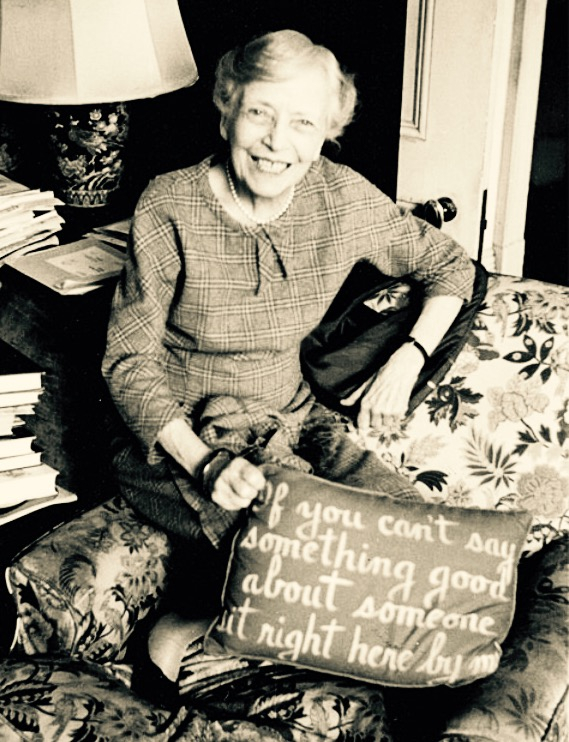 If you can't say
something good
about someone
it right here by m